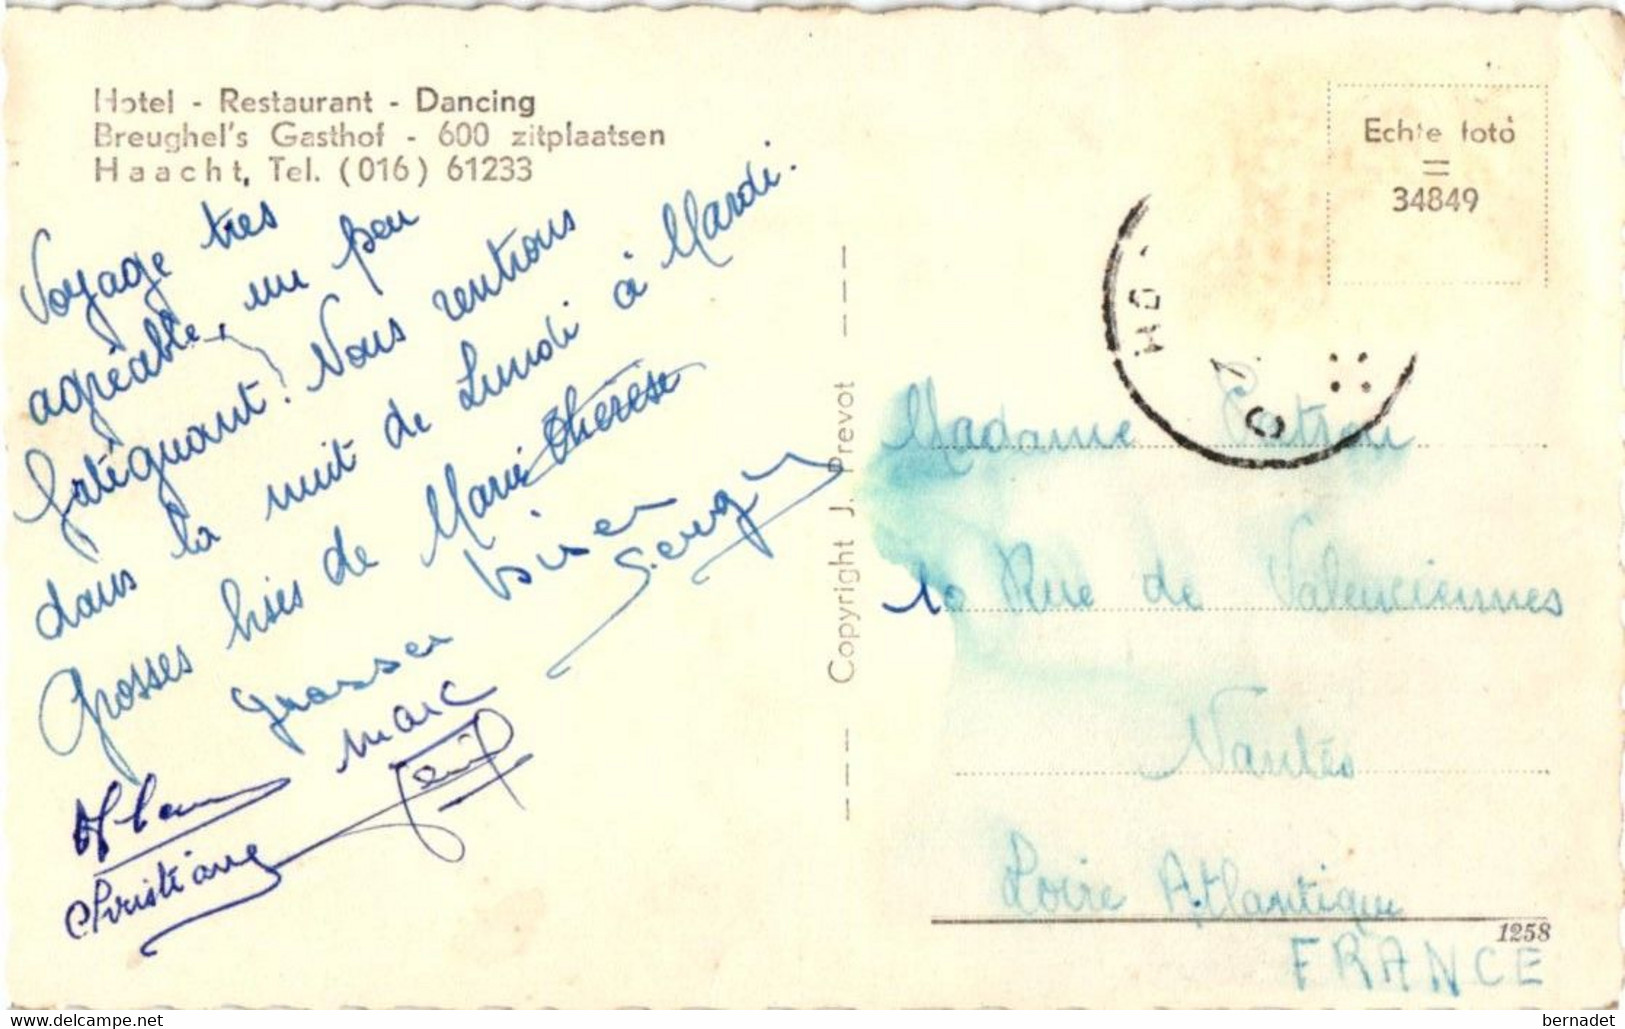 Hotel - Restaurant - Dancing
Breughel's Gasthof - 600 zitplaatsen
Haacht, Tel. (016) 61233
Voyage tres
agréable, un peu
fatiguant! Nous rentrons
dans la nuit de Lundi à Mardi.
Grosses bises de Marie Thérèse
grosses bises
Serge
Marc
Alain
Christiane
Copyright J. Prevot
Echte foto
=
34849
Madame
10 Rue de Valenciennes
Nantes
Loire Atlantique
FRANCE
1258
www.delcampe.net
bernadet